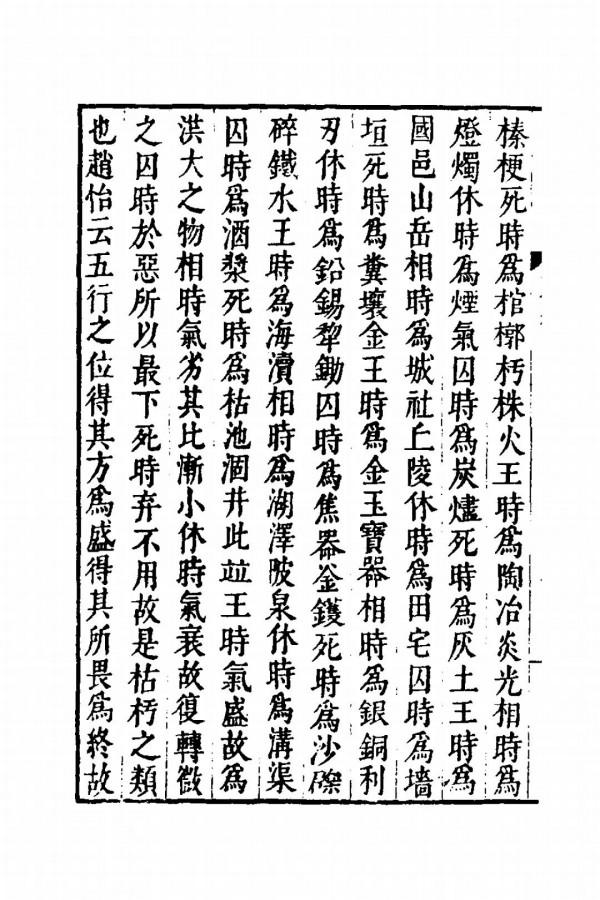 榛梗死時爲棺槨朽株火王時爲陶冶炎光相時爲
燈燭休時爲煙氣囚時爲炭燼死時爲灰土王時爲
國邑山岳相時爲城社丘陵休時爲田宅囚時爲墻
垣死時爲糞壤金王時爲金玉寶器相時爲銀銅利
刃休時爲鉛錫犁鋤囚時爲焦器釜鑊死時爲沙礫
碎鐵水王時爲海瀆相時爲湖澤陂泉休時爲溝渠
囚時爲酒漿死時爲枯池涸井此竝王時氣盛故爲
洪大之物相時氣劣其比漸小休時氣衰故復轉微
之囚時於惡所以最下死時弃不用故是枯朽之類
也趙怡云五行之位得其方爲盛得其所畏爲終故